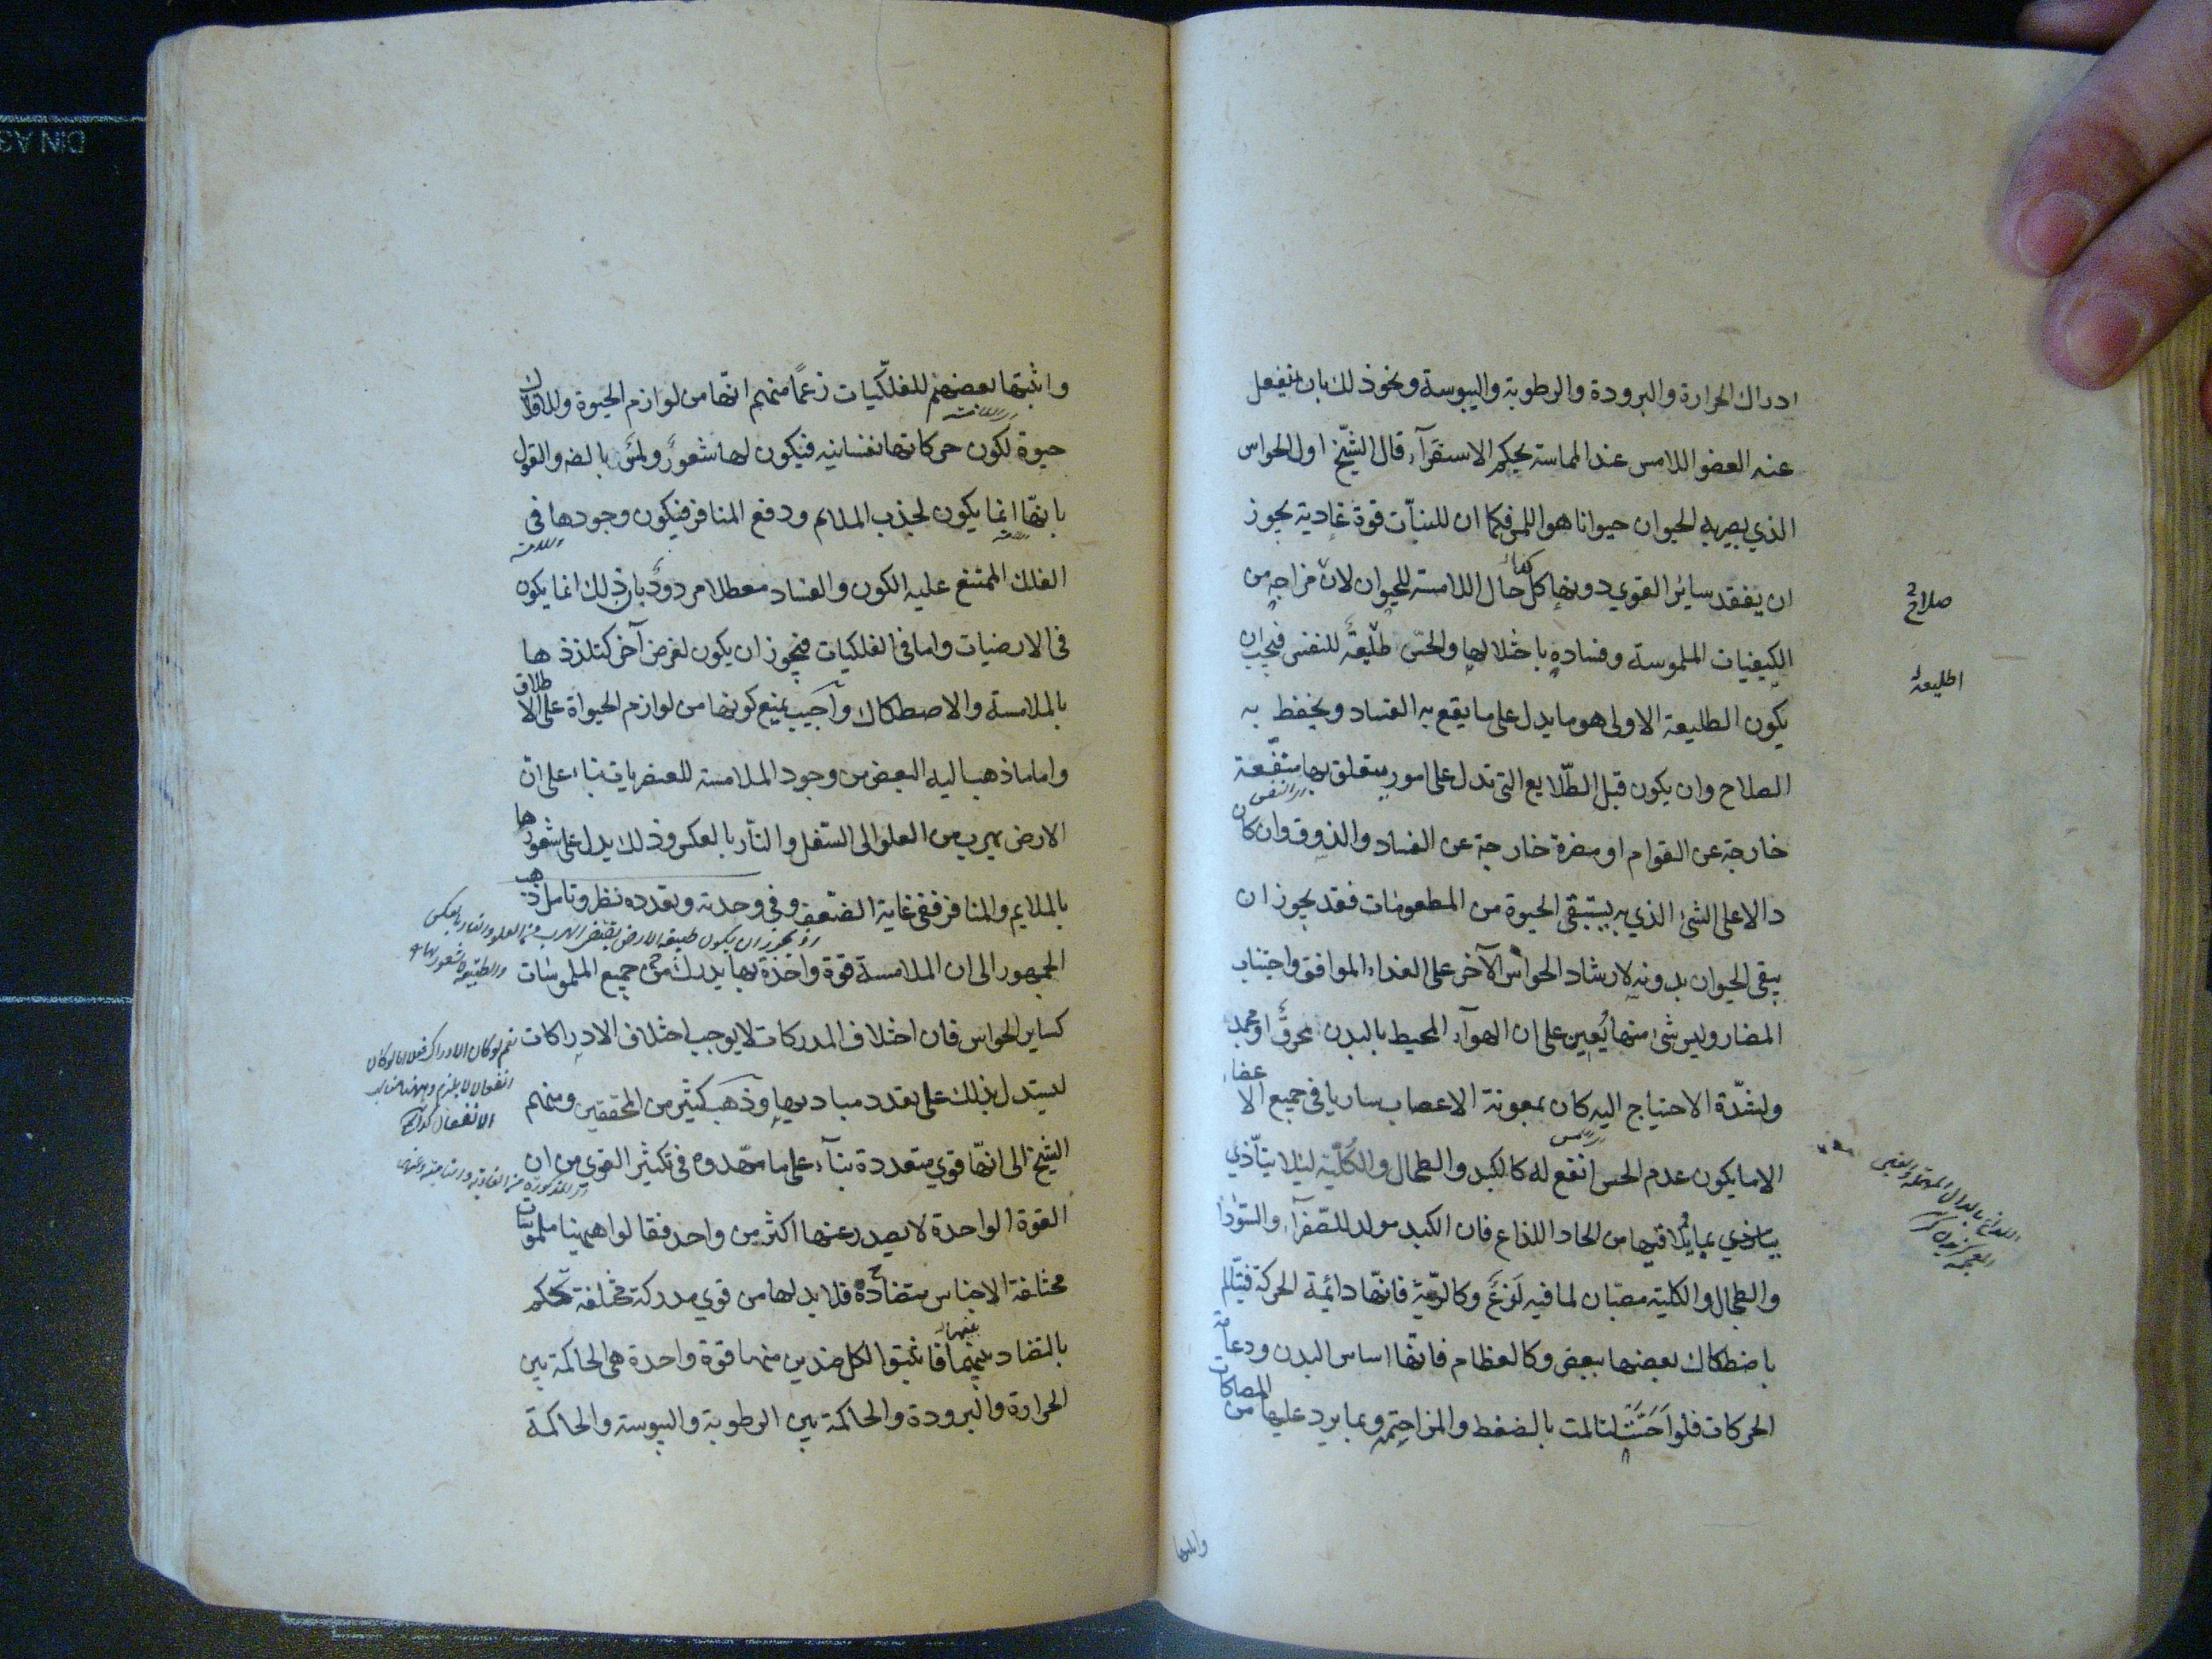 ادراك الحرارة والبرودة والرطوبة واليبوسة ونحو ذلك بان ينفعل
عنه العضو اللامس عند المماسة بحكم الاستقرآء قال الشيخ اول الحواس
الذي يصير به الحيوان حيوانا هو اللمس فكما ان للنبات قوة غاذية يجوز
ان يفقد سائر القوي دونها كذلك حال اللامسة للحيوان لان مزاجه من
صلاح
الكيفيات الملموسة وفساده باختلالها والحس طليعة للنفس فيجب ان
الطليعة
يكون الطليعة الاولى هو ما يدل على ما يقع به الفساد ويحفظ به
الصلاح وان يكون قبل الطلايع التى تدل على امور يتعلق بها منفعة
خارجة عن القوام او مضرة خارجة عن الفساد والذوق وان كان
دالا على الشئ الذي به يستبقى الحيوة من المطعومات فقد يجوز ان
يبقى الحيوان بدونه لارشاد الحواس الآخر على الغذاء الموافق واجتناب
المضار وليس شئ منها يعين على ان الهوآء المحيط بالبدن محرق او مجمد
ولشدة الاحتياج اليه كان بمعونة الاعصاب ساريا فى جميع الاعضاء
الا ما يكون عدم الحس انفع له كالكبد والطحال والكلية ليلا يتأذي
بما يلاقيها من الحاد اللذاع فان الكبد مولد للصفرآء والسودا
والطحال والكلية مصبان لما فيه لذع وكالرية فانها دائمة الحركة فيتألم
باصطكاك بعضها ببعض وكالعظام فانها اساس البدن ودعامة
الحركات فلو احست لتالمت بالضغط والمزاحمة وبما يرد عليها من المصاكات
واثبتها بعضهم للفلكيات زعما منهم انها من لوازم الحيوة وللافلاك
حيوة لكون حركاتها نفسانيه فيكون لها شعور ولمس بالضه والقول
بانها انما يكون لجذب الملائم ودفع المنافر فيكون وجودها فى
الفلك الممتنع عليه الكون والفساد معطلا مردود بان ذلك انما يكون
فى الارضيات واما فى الفلكيات فيجوز ان يكون لغرض آخر كتلذذها
بالملامسة والاصطكاك وأجيب بمنع كونها من لوازم الحيواة على الاطلاق
واما ما ذهب اليه البعض من وجود الملامسة للعنصريات بناء على ان
الارض يهرب من العلو الى السفل والنار بالعكس وذلك يدل على شعورها
بالملايم والمنافر ففى غاية الضعف وفى وحدته وتعدده نظر وتامل ذهب
الجمهور الى ان الملامسة قوة واحدة بها يدرك جميع الملموسات
كساير الحواس فان اختلاف المدركات لا يوجب اختلاف الادراكات
ليستدل بذلك على تعدد مباديها وذهب كثير من المحققين ومنهم
الشيخ الى انها قوي متعددة بنآء على ما مهدوه فى تكثير القوي من ان
القوة الواحدة لا يصدر عنها اكثر من واحد فقالوا ههنا ملموسات
مختلفة الاجناس متضادة فلا بد لها من قوي مدركة مختلفة تحكم
بالتضاد بينها فاثبتوا لكل ضدين منها قوة واحدة هى الحاكمة بين
الحرارة والبرودة والحاكمة بين الرطوبة واليبوسة والحاكمة